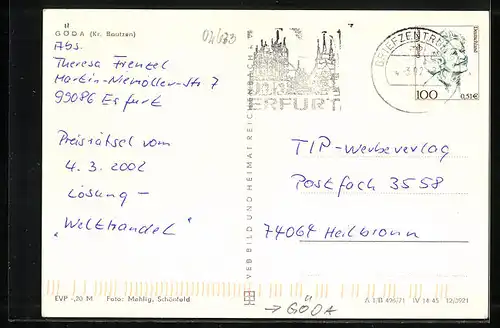 GÖDA (Kr. Bautzen)
Abs.
Theresa Frenzel
Martin-Niemöller-Str 7
99086 Erfurt
Preisrätsel vom
4. 3. 2002
Lösung –
„Welthandel"
EVP -,20 M Foto: Mehlig, Schönfeld
VEB BILD UND HEIMAT REICHENBACH I. V.
ERFURT
BRIEFZENTRUM
Deutschland
100
0,51€
TIP-Werbeverlag
Postfach 3558
74064 Heilbronn
→ GÖDA
A 1/B 426/71 IV 14 45 12/3921